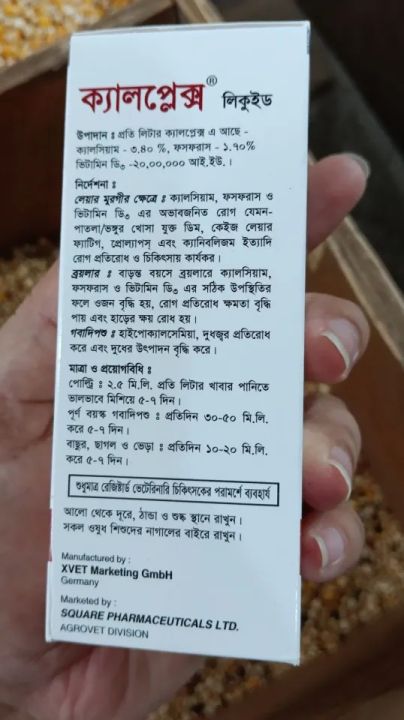 ক্যালপ্লেক্স® লিকুইড
উপাদান ঃ প্রতি লিটার ক্যালপ্লেক্স এ আছে -
ক্যালসিয়াম - ৩.৪০ %, ফসফরাস - ১.৭০%
ভিটামিন ডি৩ -২০,০০,০০০ আই.ইউ. ।
নির্দেশনা ঃ
লেয়ার মুরগীর ক্ষেত্রে ঃ ক্যালসিয়াম, ফসফরাস ও
ভিটামিন ডি৩ এর অভাবজনিত রোগ যেমন-
পাতলা/ভঙ্গুর খোসা যুক্ত ডিম, কেইজ লেয়ার
ফ্যাটিগ, প্রোল্যাপস্ এবং ক্যানিবলিজম ইত্যাদি
রোগ প্রতিরোধ ও চিকিৎসায় কার্যকর।
ব্রয়লার ঃ বাড়ন্ত বয়সে ব্রয়লারে ক্যালসিয়াম,
ফসফরাস ও ভিটামিন ডি৩ এর সঠিক উপস্থিতির
ফলে ওজন বৃদ্ধি হয়, রোগ প্রতিরোধ ক্ষমতা বৃদ্ধি
পায় এবং হাড়ের ক্ষয় রোধ হয়।
গবাদিপশু ঃ হাইপোক্যালসেমিয়া, দুধজ্বর প্রতিরোধ
করে এবং দুধের উৎপাদন বৃদ্ধি করে।
মাত্রা ও প্রয়োগবিধি ঃ
পোল্ট্রি ঃ ২.৫ মি.লি. প্রতি লিটার খাবার পানিতে
ভালভাবে মিশিয়ে ৫-৭ দিন।
পূর্ণ বয়স্ক গবাদিপশু ঃ প্রতিদিন ৩০-৫০ মি.লি.
করে ৫-৭ দিন।
বাছুর, ছাগল ও ভেড়া ঃ প্রতিদিন ১০-২০ মি.লি.
করে ৫-৭ দিন।
শুধুমাত্র রেজিষ্টার্ড ভেটেরিনারি চিকিৎসকের পরামর্শে ব্যবহার্য
আলো থেকে দূরে, ঠান্ডা ও শুষ্ক স্থানে রাখুন।
সকল ওষুধ শিশুদের নাগালের বাইরে রাখুন।
Manufactured by :
XVET Marketing GmbH
Germany
Marketed by :
SQUARE PHARMACEUTICALS LTD.
AGROVET DIVISION